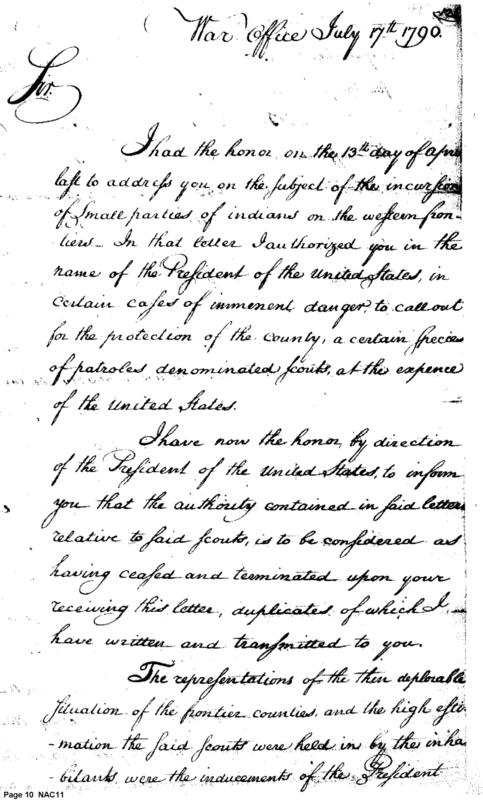 War Office July 17th 1790.
Sir.
I had the honor on the 13th day of April
last to address you on the subject of the incursions
of small parties of indians on the western fron-
tiers - In that letter I authorized you in the
name of the President of the United States, in
certain cases of immenent danger, to call out
for the protection of the county, a certain species
of patroles denominated scouts, at the expence
of the United States.
I have now the honor, by direction
of the President of the United States, to inform
you that the authority contained in said letter
relative to said scouts, is to be considered as
having ceased and terminated upon your
receiving this letter, duplicates of which I
have written and transmitted to you.
The representations of the then deplorable
situation of the frontier counties, and the high esti
-mation the said scouts were held in by the inha
-bitants were the inducements of the President
Page 10 NAC11